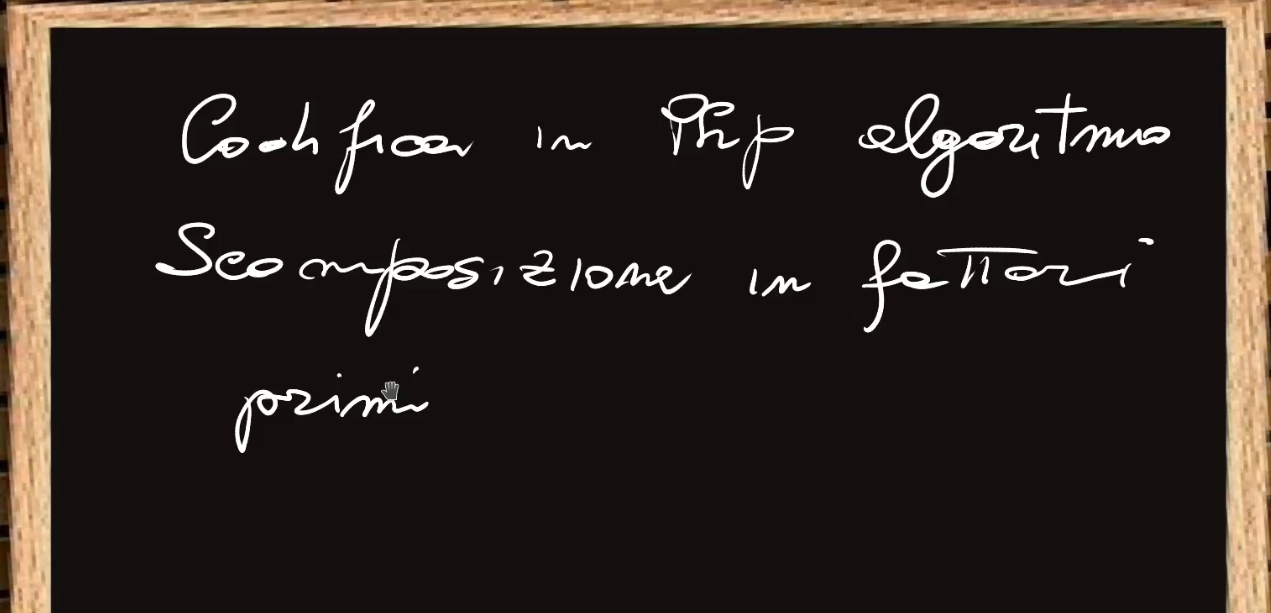 Codifica in Php algoritmo
Scomposizione in fattori
primi